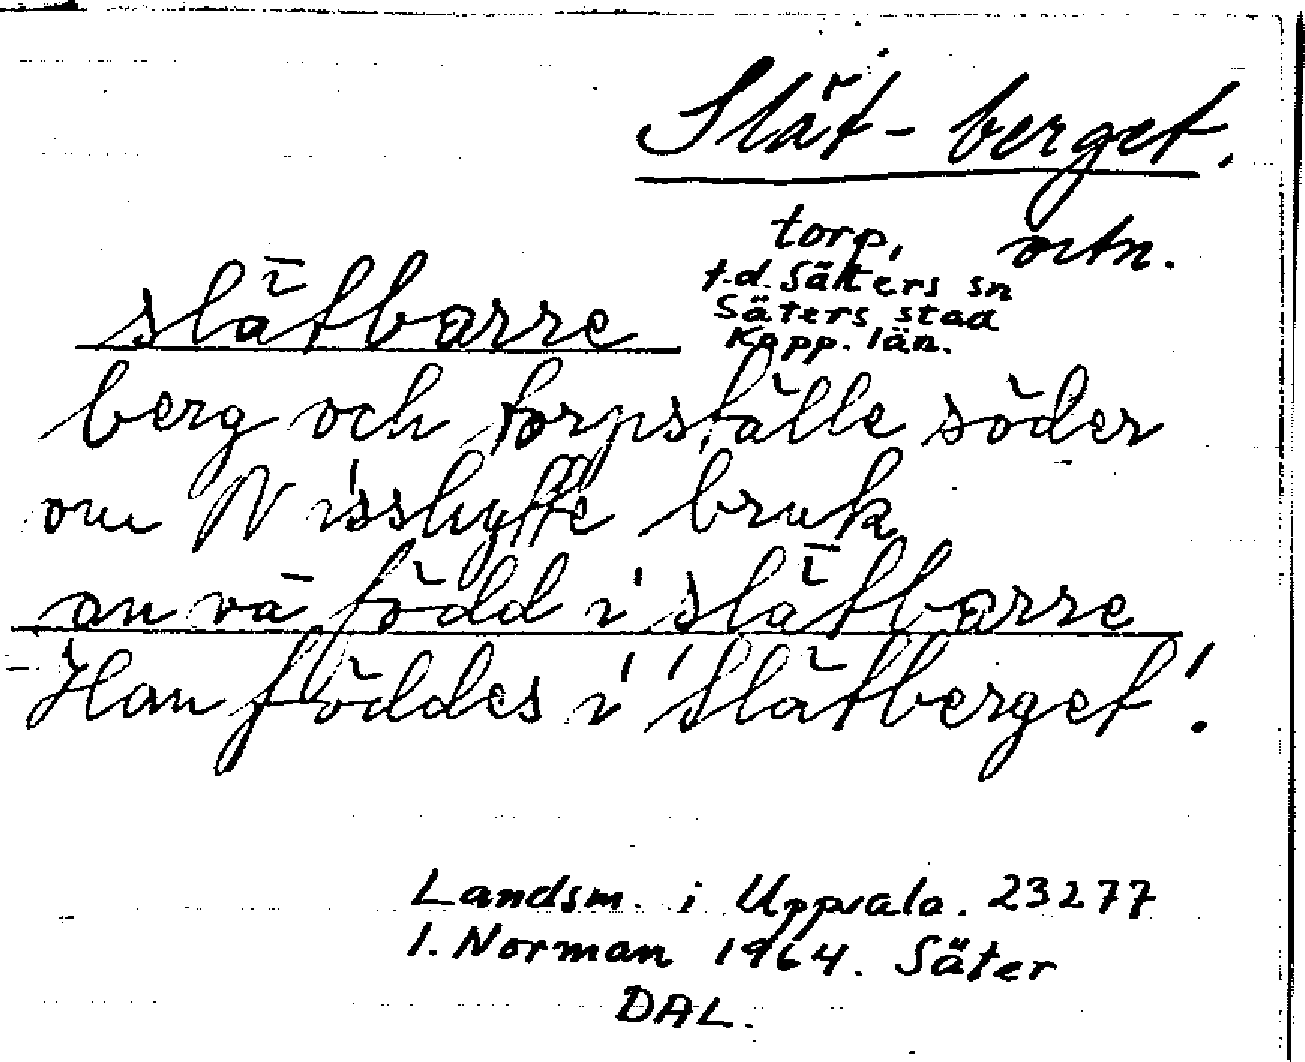 Slät-berget.
torp, ortn.
t.d. Säters sn
Säters stad
Kopp. län.
slätbarre
berg och torpställe söder
om Nisshytte bruk
an va född i slätbarre
Han föddes i 'Slätberget'.
Landsm. i Uppsala. 23277
I. Norman 1964. Säter
DAL.